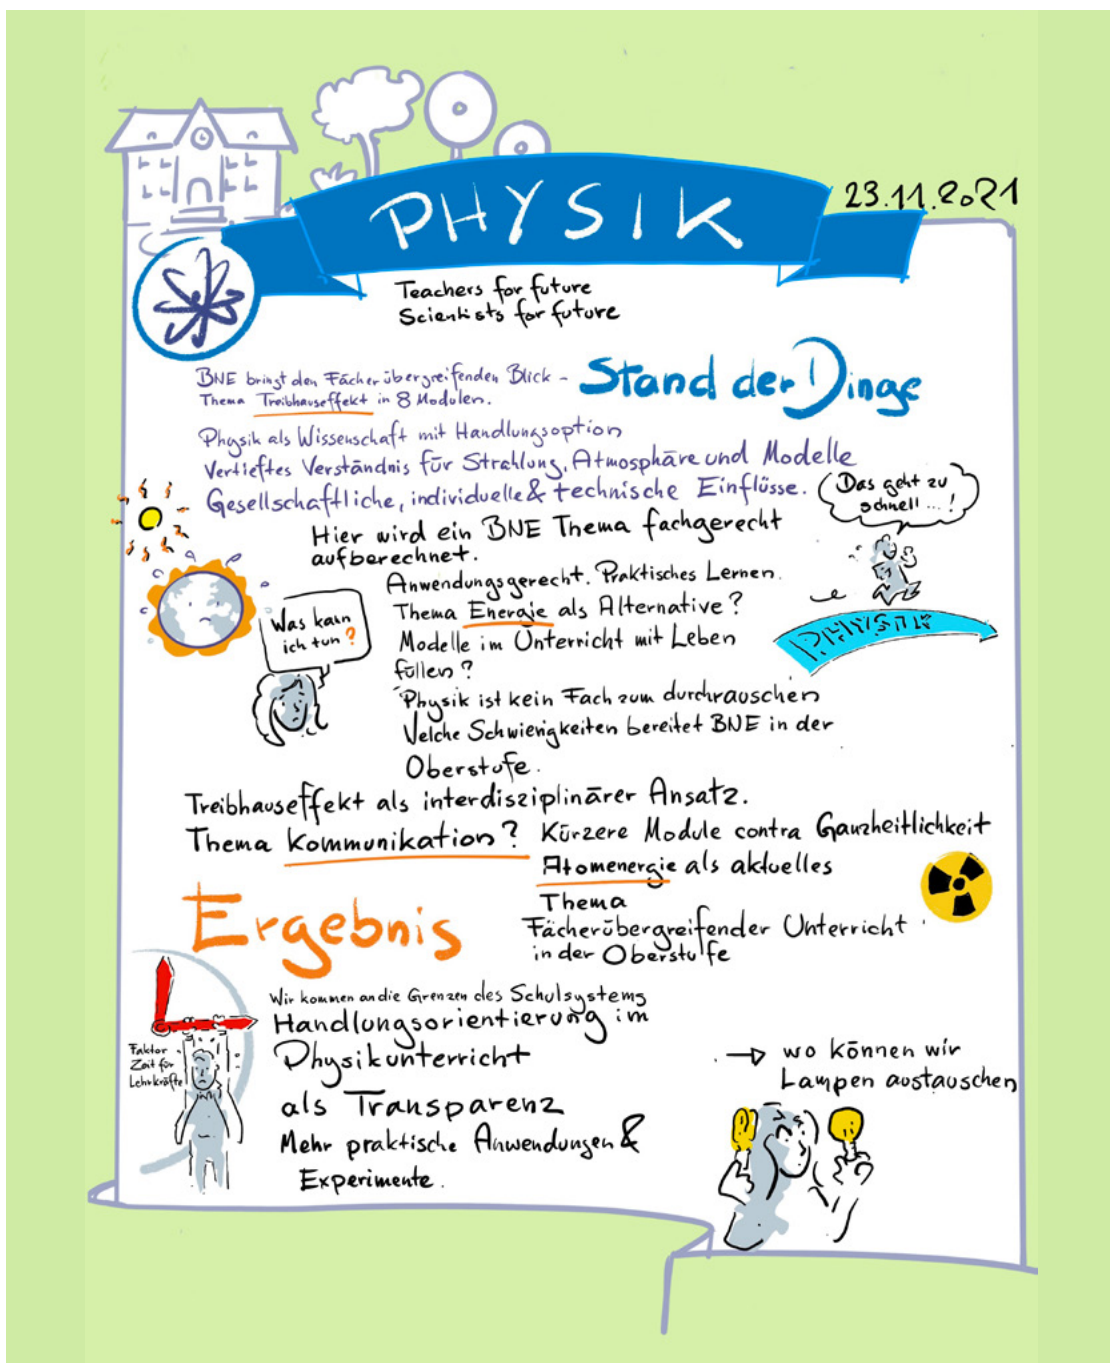 PHYSIK
23.11.2021
Teachers for future
Scientists for future
Stand der Dinge
BNE bringt den Fächerübergreifenden Blick -
Thema Treibhauseffekt in 8 Modulen.
Physik als Wissenschaft mit Handlungsoption
Vertieftes Verständnis für Strahlung, Atmosphäre und Modelle
Gesellschaftliche, individuelle & technische Einflüsse.
Das geht zu
schnell ...!
Hier wird ein BNE Thema fachgerecht
aufberechnet.
Anwendungsgerecht. Praktisches Lernen.
Thema Energie als Alternative?
Modelle im Unterricht mit Leben
füllen?
Was kann
ich tun?
PHYSIK
Physik ist kein Fach zum durchrauschen
Welche Schwierigkeiten bereitet BNE in der
Oberstufe.
Treibhauseffekt als interdisziplinärer Ansatz.
Thema Kommunikation? Kürzere Module contra Ganzheitlichkeit
Atomenergie als aktuelles
Thema
Fächerübergreifender Unterricht
in der Oberstufe
Ergebnis
Wir kommen an die Grenzen des Schulsystems
Handlungsorientierung im
Physikunterricht
als Transparenz
Mehr praktische Anwendungen &
Experimente.
Faktor
Zeit für
Lehrkräfte
→ wo können wir
Lampen austauschen